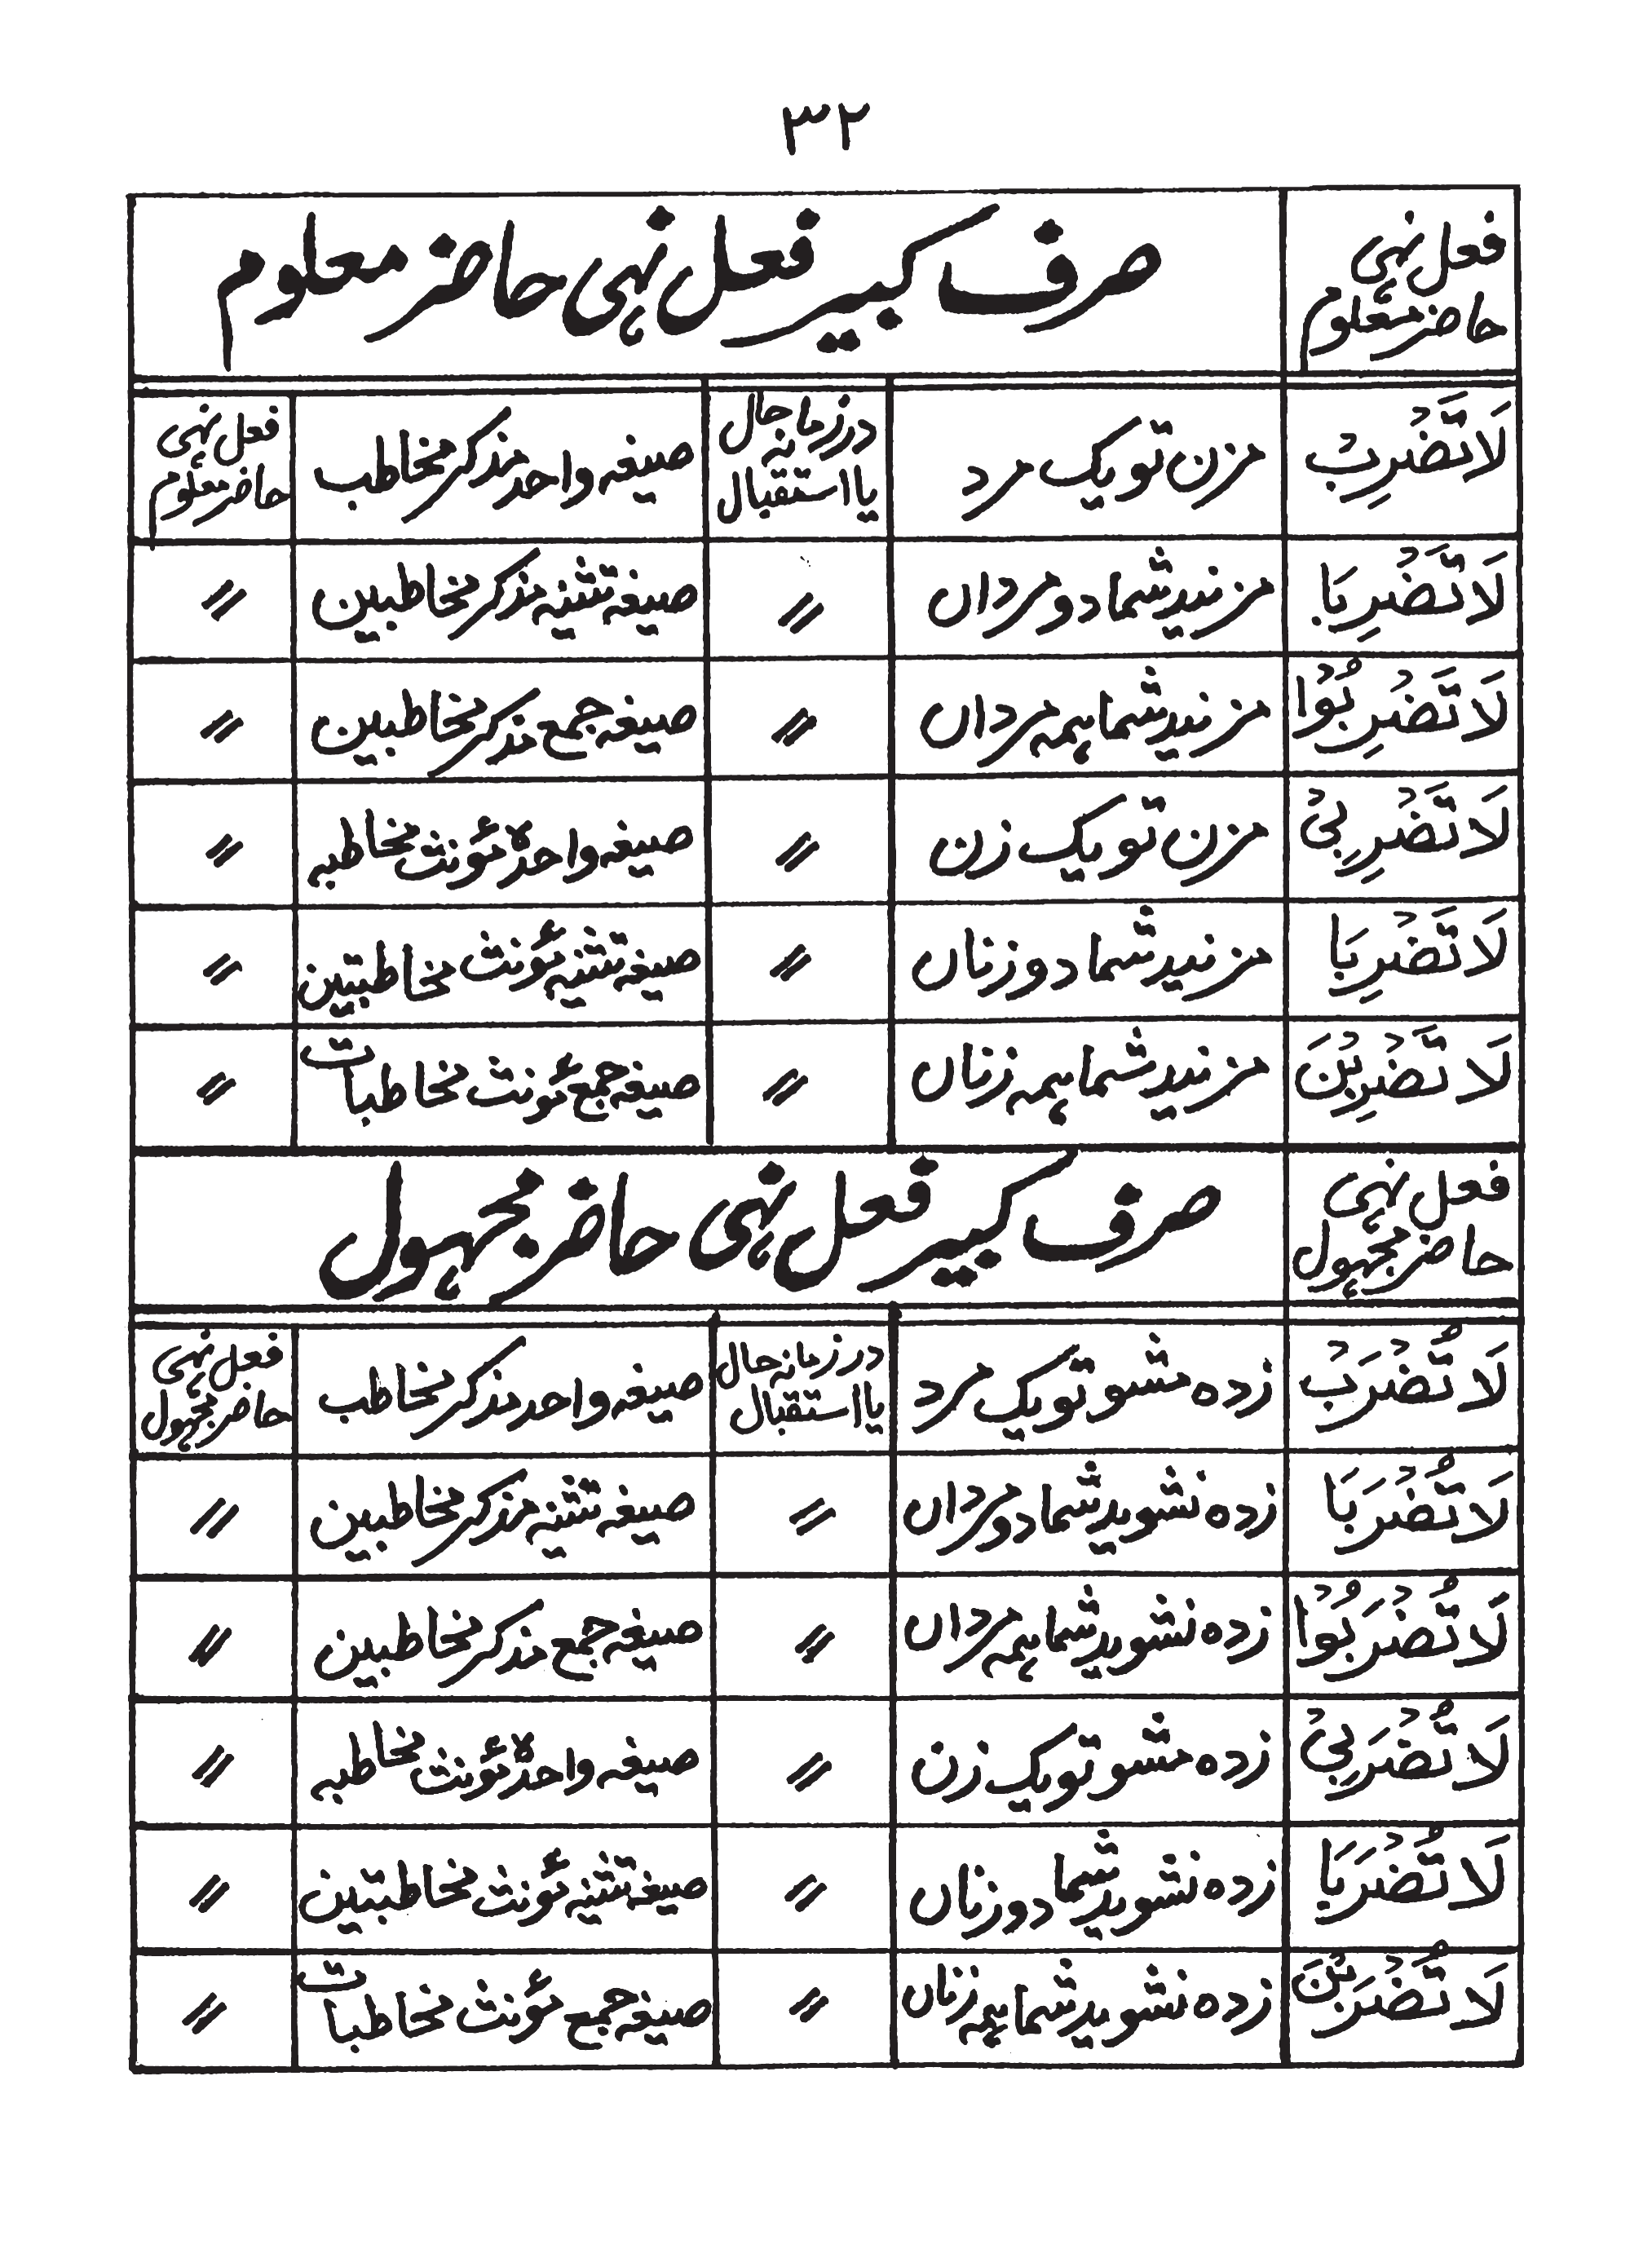 ۳۲
فعل نہی حاضر معلوم | صرف کبیر فعل نہی حاضر معلوم
لَا تَضْرِبْ | مزن تو یک مرد | در زمانہ حال یا استقبال | صیغہ واحد مذکر مخاطب | فعل نہی حاضر معلوم
لَا تَضْرِبَا | مزنید شما دو مرداں | 〃 | صیغہ تثنیہ مذکر مخاطبین | 〃
لَا تَضْرِبُوْا | مزنید شما ہمہ مرداں | 〃 | صیغہ جمع مذکر مخاطبین | 〃
لَا تَضْرِبِیْ | مزن تو یک زن | 〃 | صیغہ واحدہ مؤنث مخاطبہ | 〃
لَا تَضْرِبَا | مزنید شما دو زناں | 〃 | صیغہ تثنیہ مؤنث مخاطبتین | 〃
لَا تَضْرِبْنَ | مزنید شما ہمہ زناں | 〃 | صیغہ جمع مؤنث مخاطبات | 〃
فعل نہی حاضر مجہول | صرف کبیر فعل نہی حاضر مجہول
لَا تُضْرَبْ | زدہ مشو تو یک مرد | در زمانہ حال یا استقبال | صیغہ واحد مذکر مخاطب | فعل نہی حاضر مجہول
لَا تُضْرَبَا | زدہ نشوید شما دو مرداں | 〃 | صیغہ تثنیہ مذکر مخاطبین | 〃
لَا تُضْرَبُوْا | زدہ نشوید شما ہمہ مرداں | 〃 | صیغہ جمع مذکر مخاطبین | 〃
لَا تُضْرَبِیْ | زدہ مشو تو یک زن | 〃 | صیغہ واحدہ مؤنث مخاطبہ | 〃
لَا تُضْرَبَا | زدہ نشوید شما دو زناں | 〃 | صیغہ تثنیہ مؤنث مخاطبتین | 〃
لَا تُضْرَبْنَ | زدہ نشوید شما ہمہ زناں | 〃 | صیغہ جمع مؤنث مخاطبات | 〃